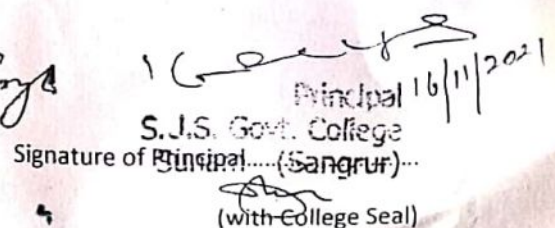 Principal 16/11/2021
S.J.S. Govt. College
Signature of Principal..... (Sangrur)...
(with College Seal)